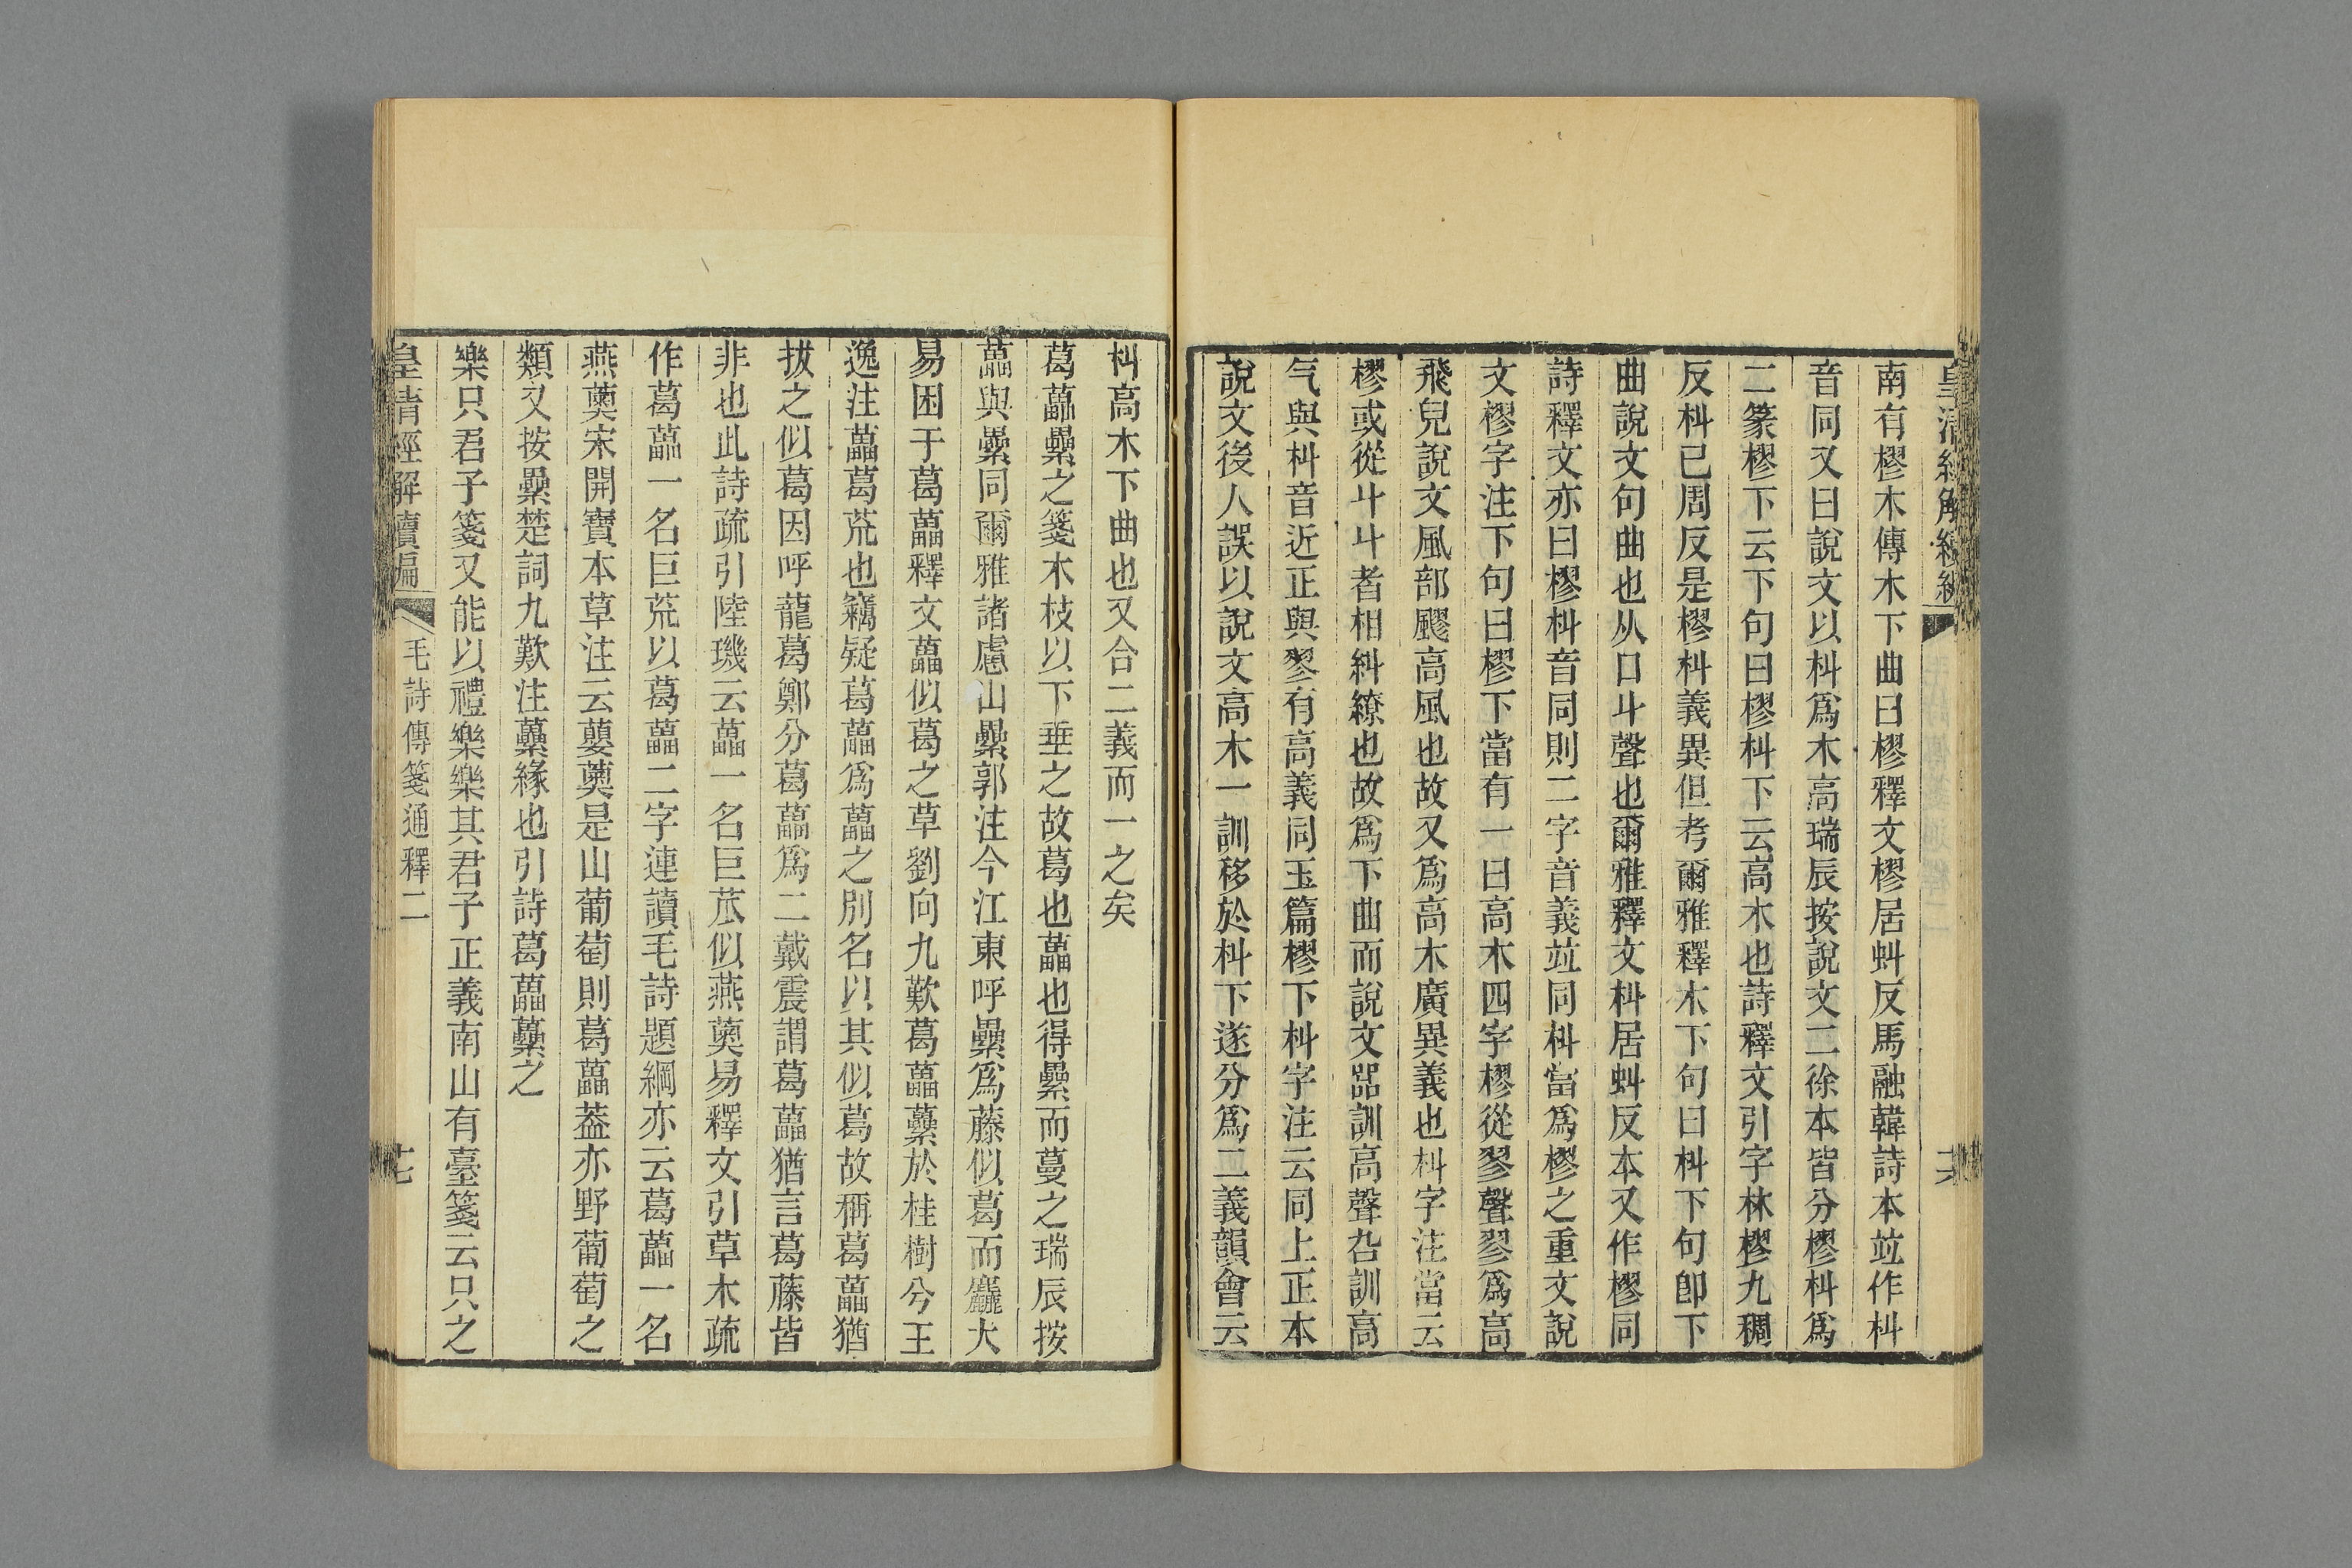 南有樛木傳木下曲曰樛釋文樛居虯反馬融韓詩本竝作朻
音同又曰說文以朻爲木高瑞辰按說文二徐本皆分樛朻爲
二篆樛下云下句曰樛朻下云高木也詩釋文引字林樛九稠
反朻己周反是樛朻義異但考爾雅釋木下句曰朻下句卽下
曲說文句曲也从口丩聲也爾雅釋文朻居虯反本又作樛同
詩釋文亦曰樛朻音同則二字音義竝同朻當爲樛之重文說
文樛字注下句曰樛下當有一曰高木四字樛從翏聲翏爲高
飛皃說文風部飂高風也故又爲高木廣異義也朻字注當云
樛或從丩丩者相糾繚也故爲下曲而說文㗊訓高聲叴訓高
气與朻音近正與翏有高義同玉篇樛下朻字注云同上正本
說文後人誤以說文高木一訓移於朻下遂分爲二義韻會云
朻高木下曲也又合二義而一之矣
葛藟纍之箋木枝以下垂之故葛也藟也得纍而蔓之瑞辰按
藟與虆同爾雅諸慮山虆郭注今江東呼虆爲藤似葛而麤大
易困于葛藟釋文藟似葛之草劉向九歎葛藟虆於桂樹兮王
逸注藟葛荒也竊疑葛藟爲藟之別名以其似葛故稱葛藟猶
拔之似葛因呼蘢葛鄭分葛藟爲二戴震謂葛藟猶言葛藤皆
非也此詩疏引陸璣云藟一名巨苽似燕薁易釋文引草木疏
作葛藟一名巨荒以葛藟二字連讀毛詩題綱亦云葛藟一名
燕薁宋開寶本草注云蘡薁是山葡萄則葛藟葢亦野葡萄之
類又按纍楚詞九歎注虆緣也引詩葛藟虆之
樂只君子箋又能以禮樂樂其君子正義南山有臺箋云只之
皇清經解續編
毛詩傳箋通釋二